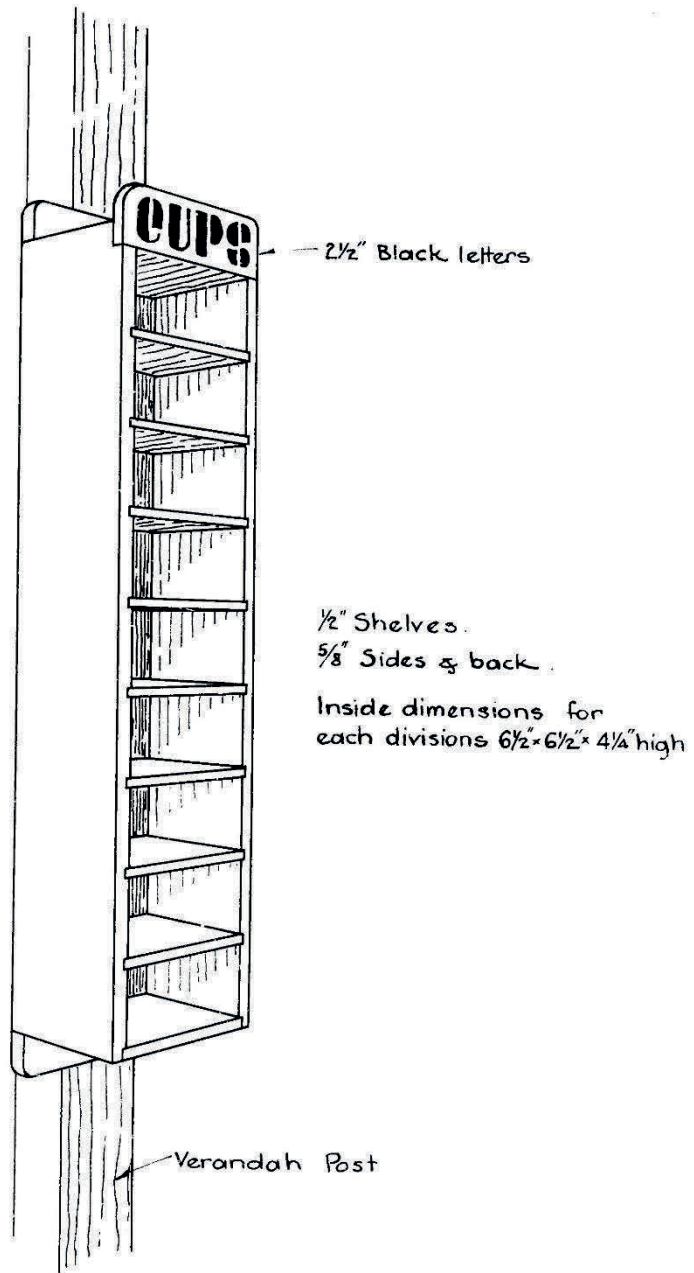 CUPS
2½" Black letters
½" Shelves.
⅝" Sides & back.
Inside dimensions for
each divisions 6½"× 6½"× 4¼" high
Verandah Post